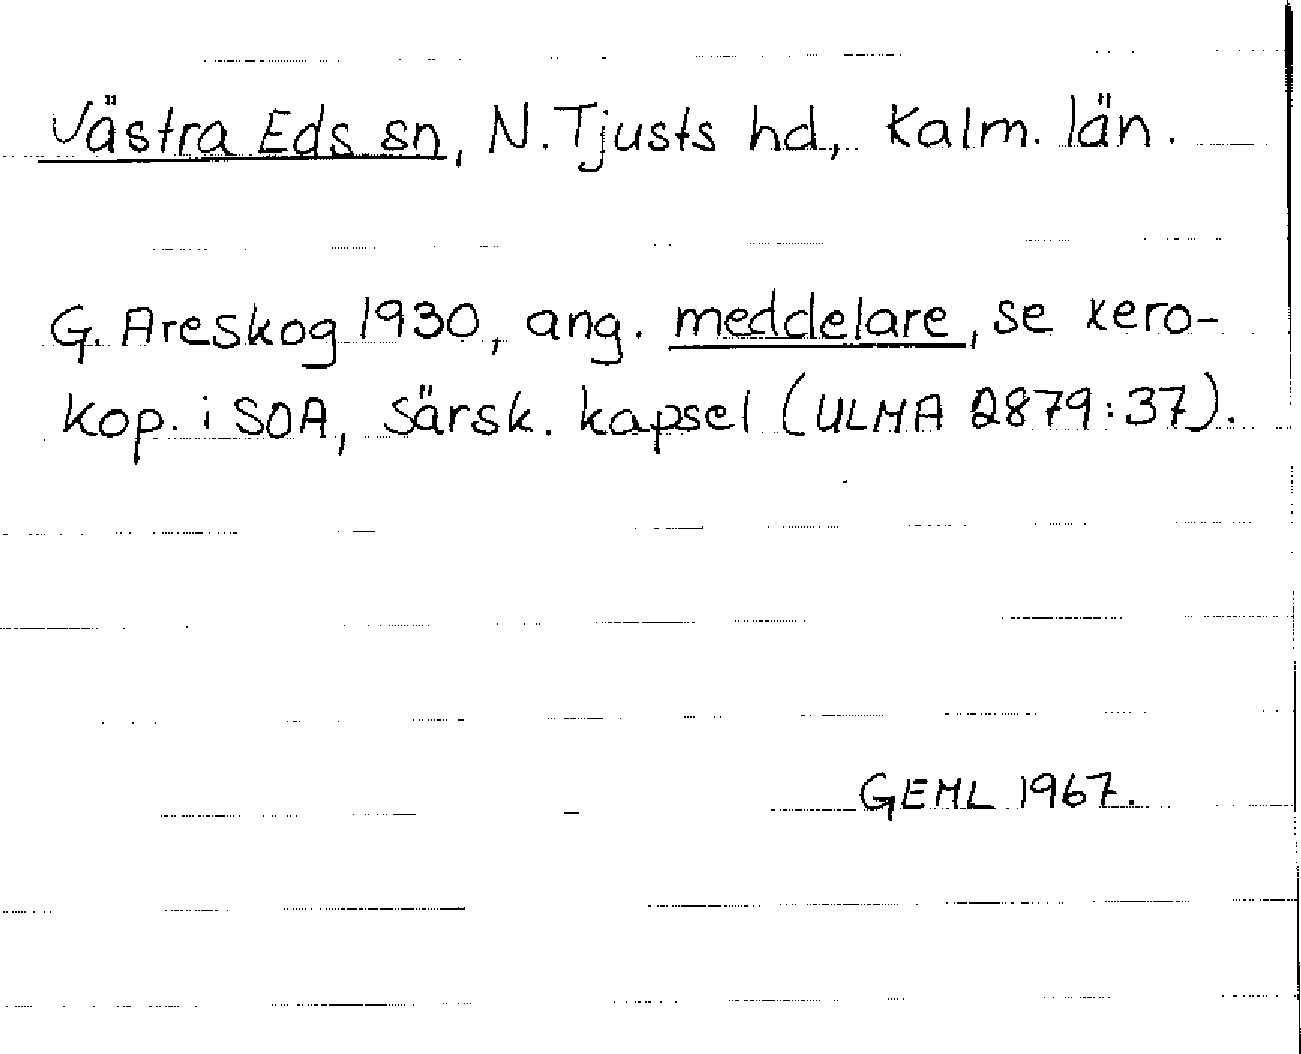 Västra Eds sn, N. Tjusts hd, Kalm. län.
G. Areskog 1930, ang. meddelare, se xero-
kop. i SOA, särsk. kapsel (ULMA 2879:37).
GEML 1967.